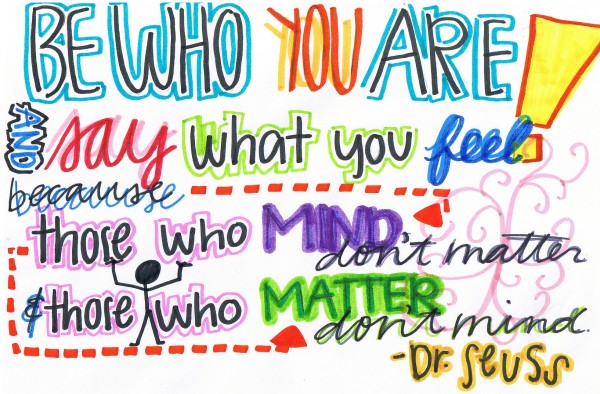 BE WHO YOU ARE!
AND say what you feel
because
those who MIND don't matter
& those who MATTER don't mind.
-Dr. Seuss